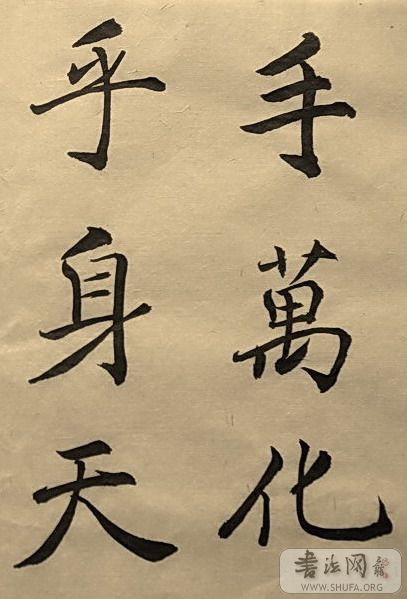 手萬化
乎身天
書法网
WWW.SHUFA.ORG